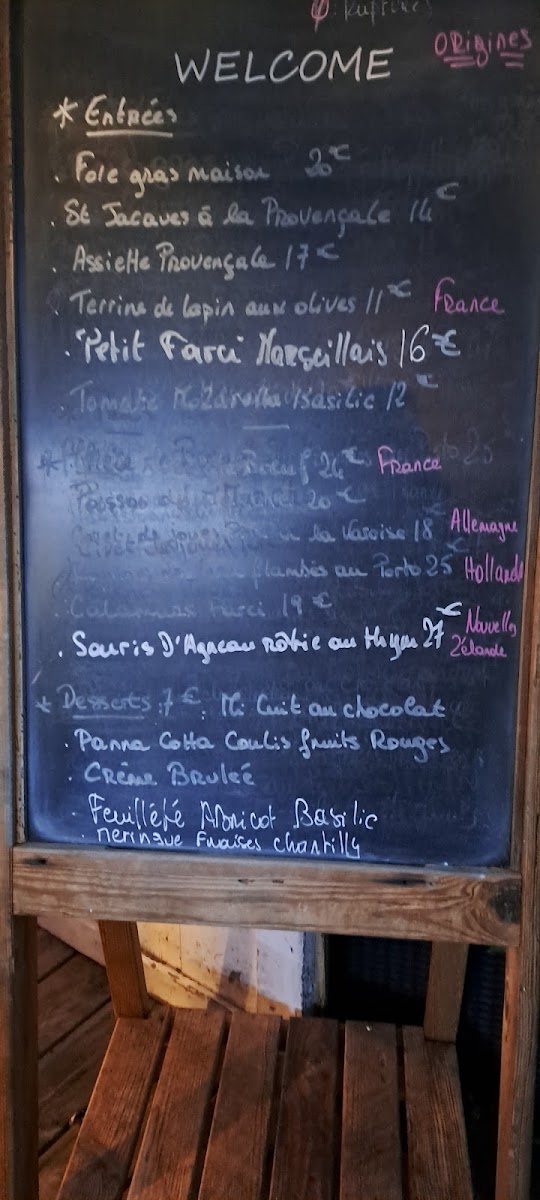 Ruptures
Origines
WELCOME
* Entrées
. Foie gras maison 20€
. St Jacques à la Provençale 14€
. Assiette Provençale 17€
. Terrine de lapin aux olives 11€ France
. Petit Farci Marseillais 16€
. Tomate Mozzarella Basilic 12€
Boeuf 24€ France
20€
la Varoise 18€ Allemagne
flambés au Porto 25€ Hollande
Calamars Farci 19€
. Souris D'Agneau rôtie au thym 27€ Nouvelle Zélande
* Desserts : 7€ . Mi Cuit au chocolat
. Panna Cotta Coulis fruits Rouges
. Crème Brulée
. Feuilleté Abricot Basilic
. Meringue Fraises chantilly